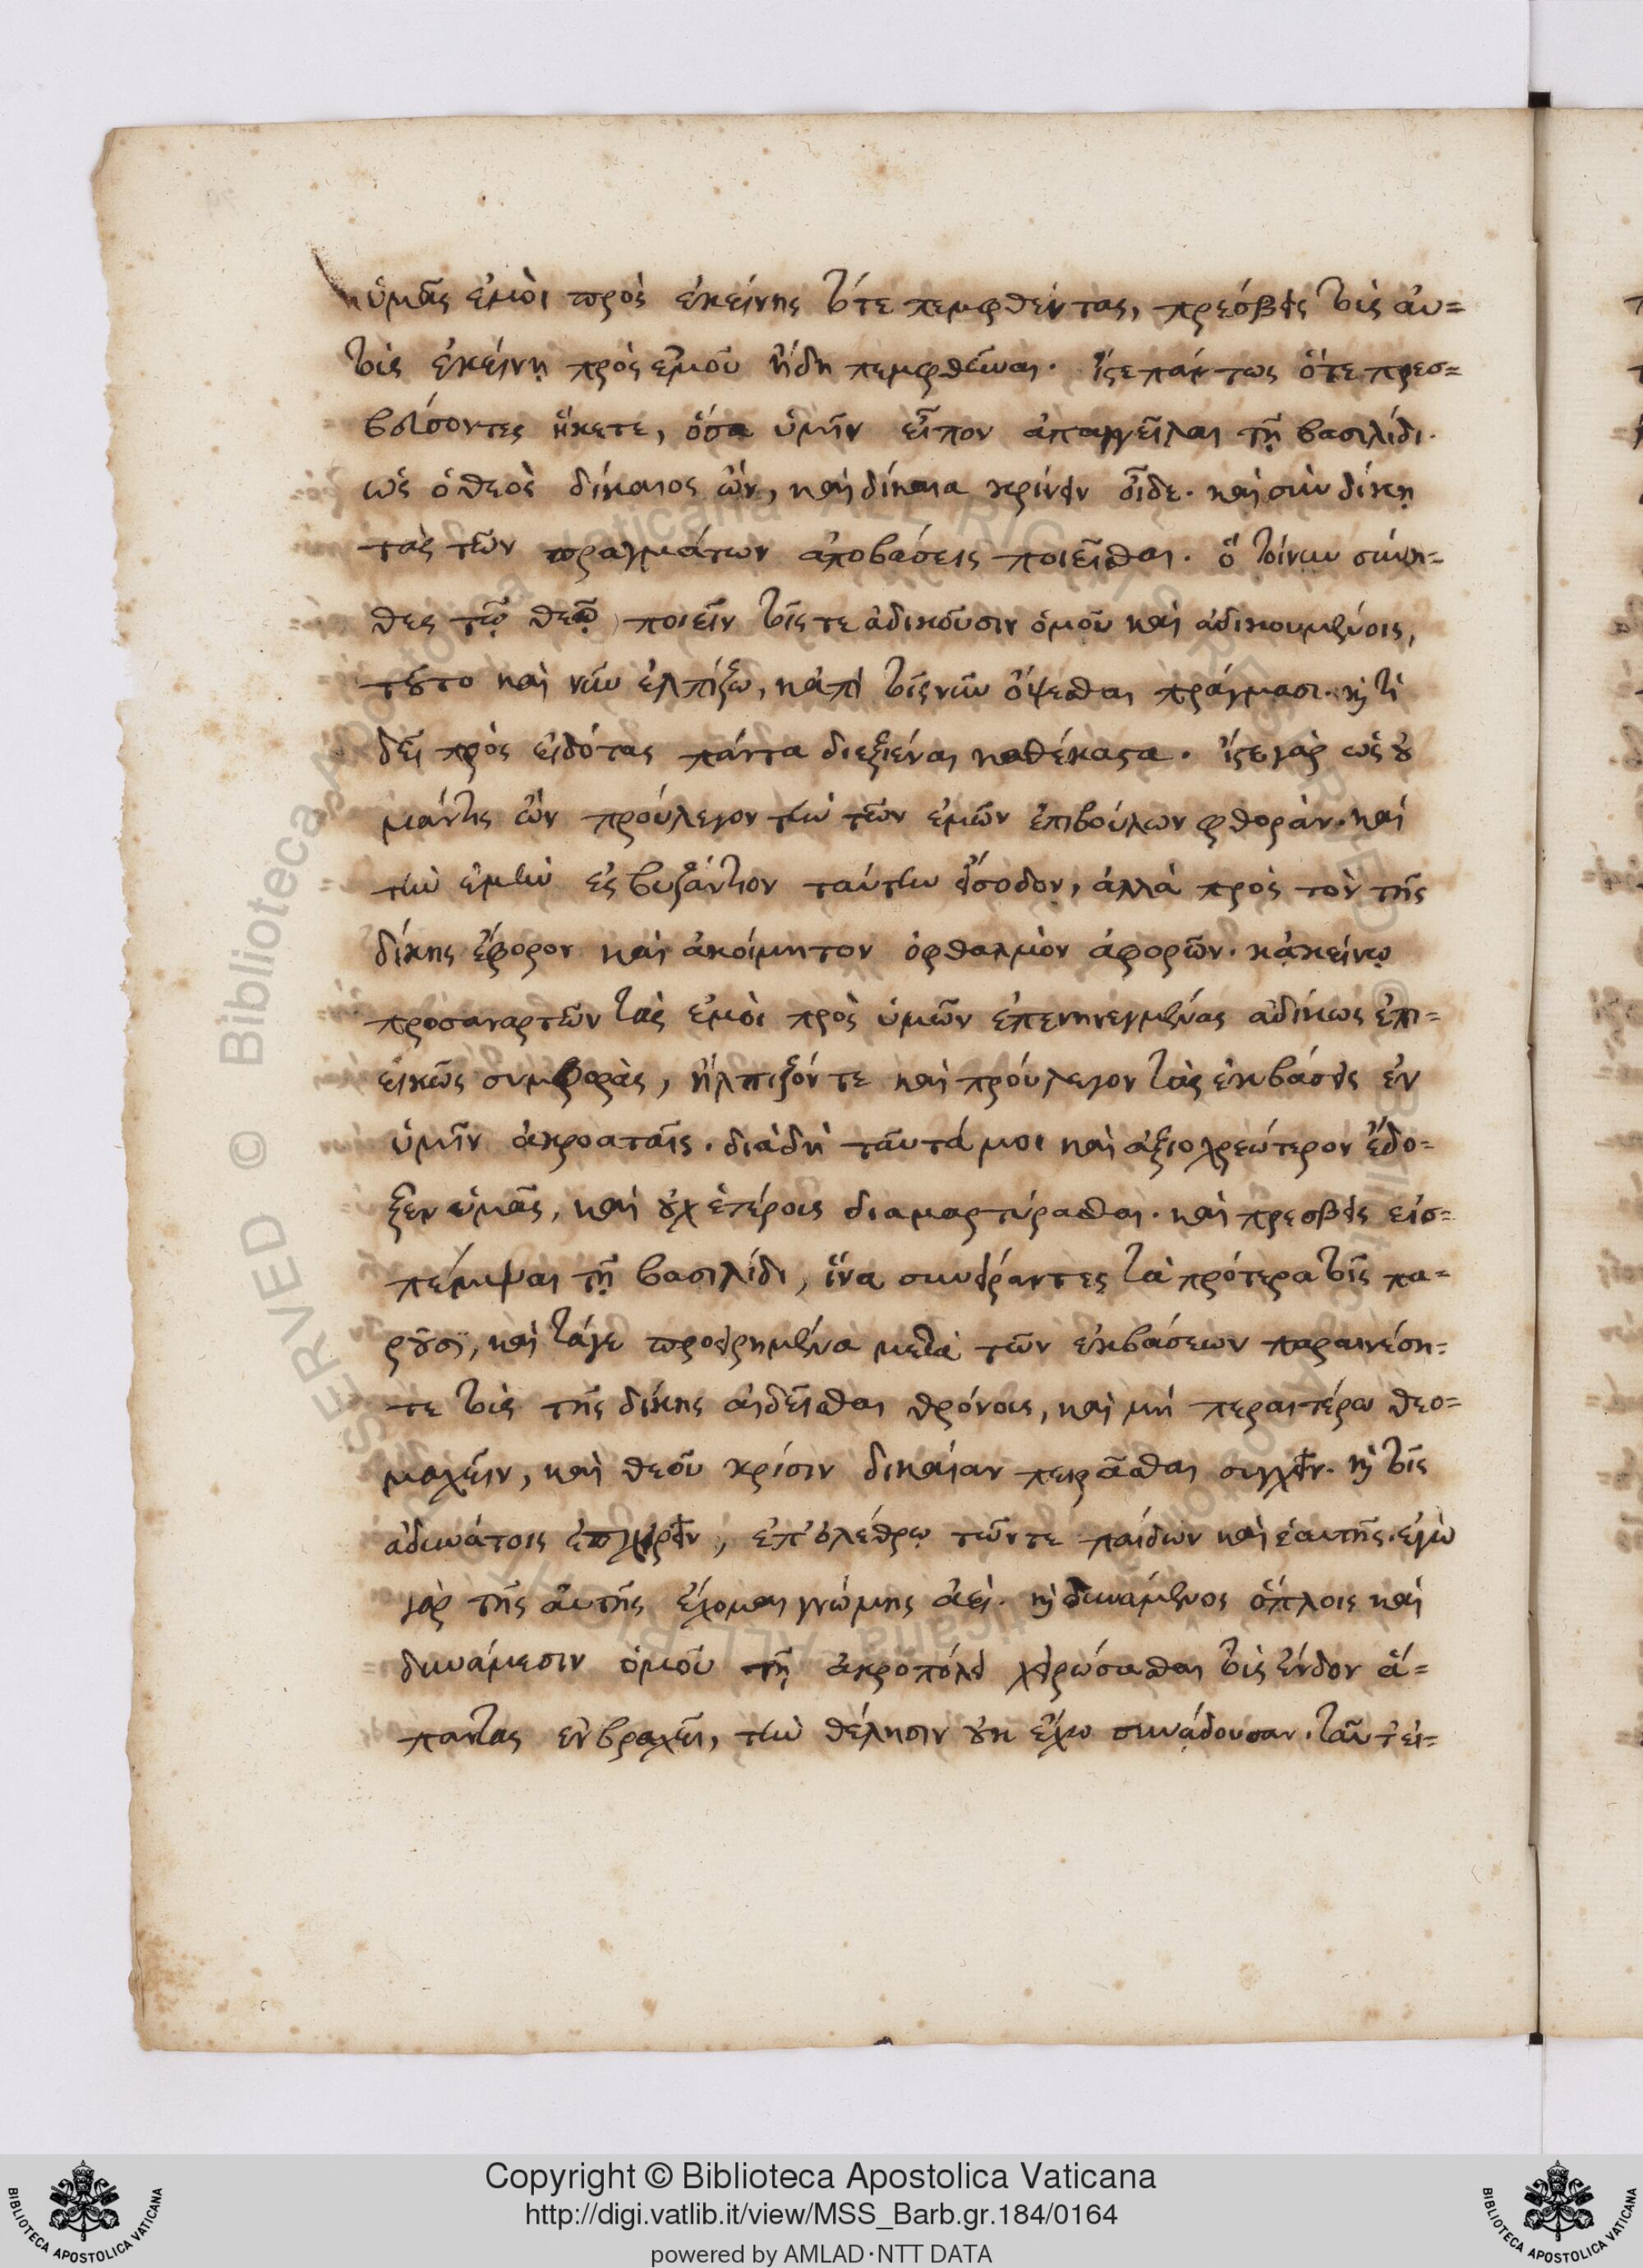 ὑμᾶς ἐμοὶ πρὸς ἐκείνης τότε πεμφθέντας, πρέσβεις τοὺς αὐ=
τοὺς ἐκείνῃ πρὸς ἐμοῦ ἤδη πεμφθῆναι. ἴστε πάντως ὅτε πρεσ=
βεύσοντες ἥκετε, ὅσα ὑμῖν εἶπον ἀπαγγεῖλαι τῇ βασιλίδι.
ὡς ὁ θεὸς δίκαιος ὢν, καὶ δίκαια κρίνειν οἶδε. καὶ σὺν δίκῃ
τὰς τῶν πραγμάτων ἀποβάσεις ποιεῖσθαι. ὃ τοίνυν σύνη=
θες τῷ θεῷ ποιεῖν τοῖς τε ἀδικοῦσιν ὁμοῦ καὶ ἀδικουμένοις,
τοῦτο καὶ νῦν ἐλπίζω, κἀπὶ τοῖς νῦν ὄψεσθαι πράγμασι. καὶ τί
δεῖ πρὸς εἰδότας πάντα διεξιέναι καθέκαστα. ἴστε γὰρ ὡς οὐ
μάντις ὢν προύλεγον τὴν τῶν ἐμῶν ἐπιβούλων φθοράν. καὶ
τὴν ἐμὴν ἐς βυζάντιον ταύτην εἴσοδον, ἀλλὰ πρὸς τὸν τῆς
δίκης ἔφορον καὶ ἀκοίμητον ὀφθαλμὸν ἀφορῶν. κἀκείνῳ
προσαναρτῶν τὰς ἐμοὶ πρὸς ὑμῶν ἐπενηνεγμένας ἀδίκως ἐπι=
εικῶς συμφορὰς, ἤλπιζόν τε καὶ προύλεγον τὰς ἐκβάσεις ἐν
ὑμῖν ἀκροαταῖς. διὰ δὴ ταῦτά μοι καὶ ἀξιοχρεώτερον ἔδο=
ξεν ὑμᾶς, καὶ οὐχ ἑτέροις διαμαρτύρασθαι. καὶ πρέσβεις εἰσ=
πέμψαι τῇ βασιλίδι, ἵνα συνείραντες τὰ πρότερα τοῖς πα=
ροῦσι, καὶ τάγε προειρημένα μετὰ τῶν ἐκβάσεων παραινέση=
τε τοὺς τῆς δίκης αἰδεῖσθαι θρόνους, καὶ μὴ περαιτέρω θεο=
μαχεῖν, καὶ θεοῦ κρίσιν δικαίαν πειρᾶσθαι συγχεῖν. καὶ τοῖς
ἀδυνάτοις ἐπιχειρεῖν, ἐπ' ὀλέθρῳ τῶν τε παίδων καὶ ἑαυτῆς. ἐγὼ
γὰρ τῆς αὐτῆς ἔχομαι γνώμης ἀεί. καὶ δυνάμενος ὅπλοις καὶ
δυνάμεσιν ὁμοῦ τῇ ἀκροπόλει χειρώσασθαι τοὺς ἔνδον ἅ=
παντας ἐν βραχεῖ, τὴν θέλησιν οὐκ ἔχω συνᾴδουσαν. ταῦτ' εἰ=
Copyright © Biblioteca Apostolica Vaticana
http://digi.vatlib.it/view/MSS_Barb.gr.184/0164
powered by AMLAD·NTT DATA
BIBLIOTECA APOSTOLICA VATICANA
BIBLIOTECA APOSTOLICA VATICANA